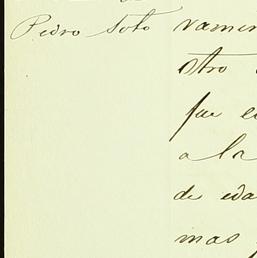 Pedro Soto
vamen
otro
fue e
a la
de eda
mas